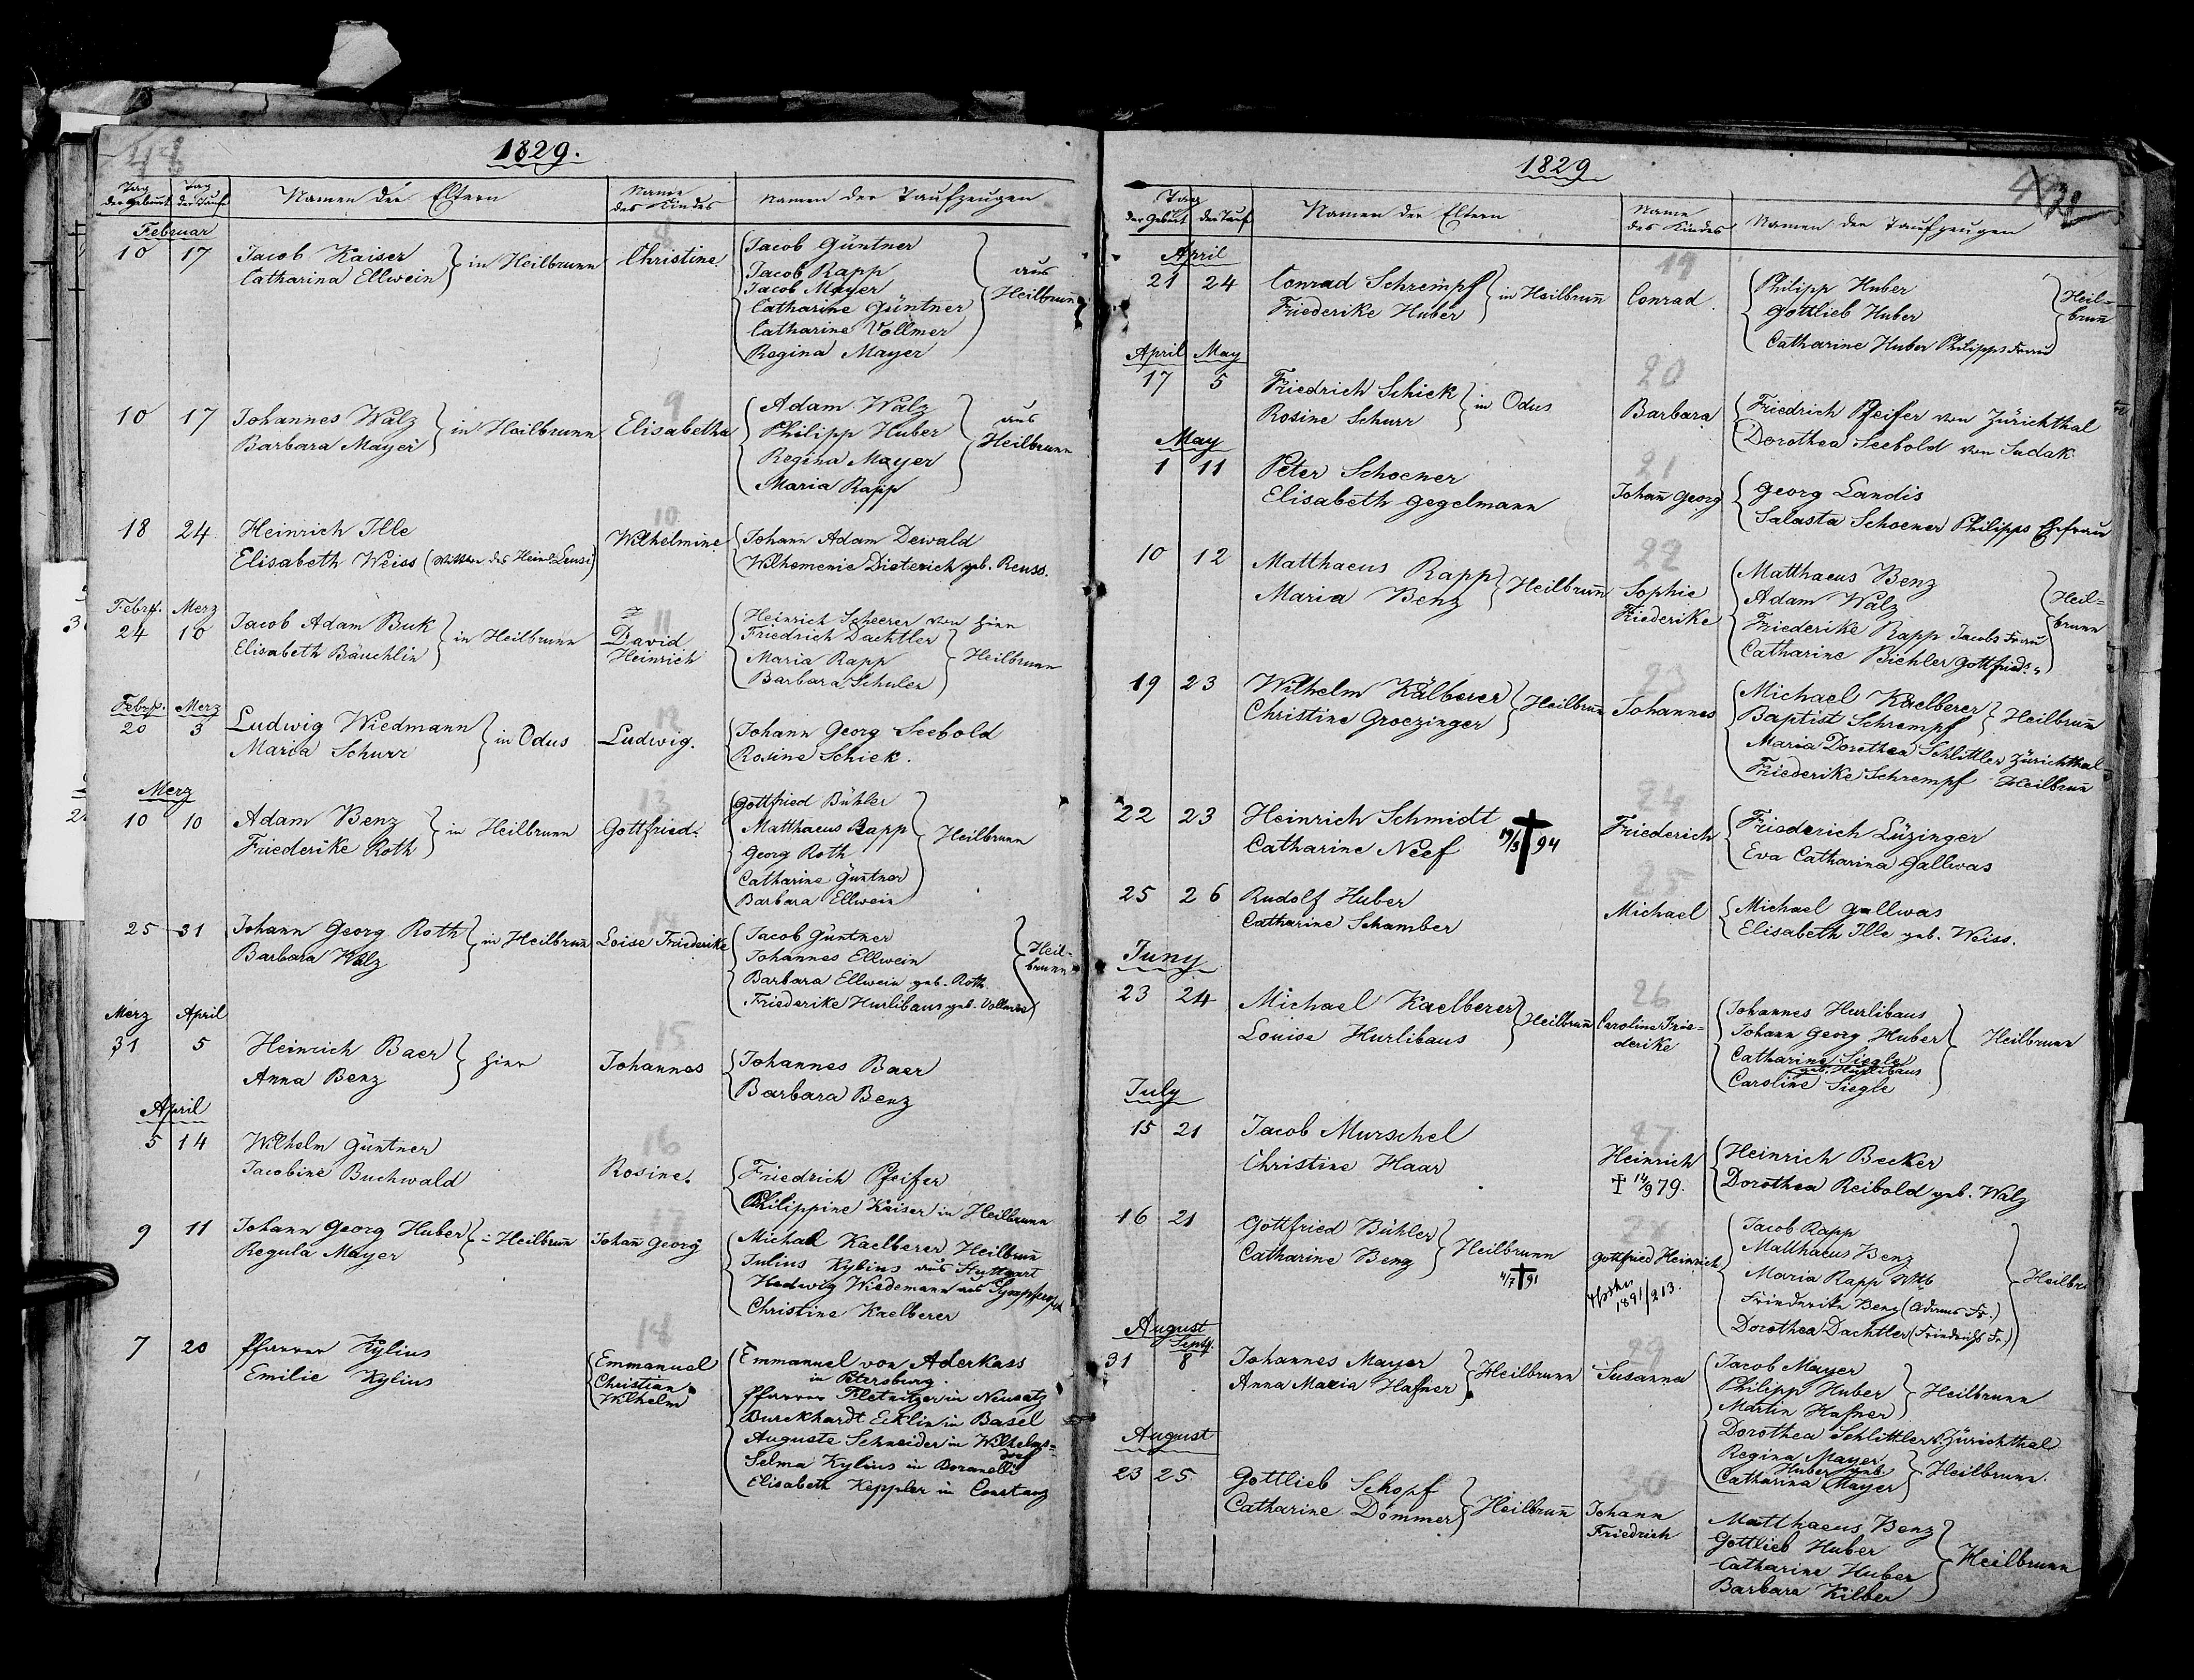 1829.
Tag der Geburt
Tag der Tauf
Namen der Eltern
Name des Kindes
Namen der Taufzeugen
Februar
8
10 17 Jacob Kaiser
Catharina Ellwein } in Heilbrunn
Christine
Jacob Güntner
Jacob Rapp
Jacob Mayer
Catharine Güntner
Catharine Vollmer
Regina Mayer
aus Heilbrunn
9
10 17 Johannes Walz
Barbara Mayer } in Heilbrunn
Elisabetha
Adam Walz
Philipp Huber
Regina Mayer
Maria Rapp
aus Heilbrunn
10
18 24 Heinrich Ille
Elisabeth Weiss (Wittwe des Heinr. Lensi)
Wilhelmine
Johann Adam Dewald
Wilhemenie Dieterich geb. Reuss.
Febr. Merz
11
24 10 Jacob Adam Buk
Elisabeth Bäuchlin } in Heilbrunn
David
Heinrich
Heinrich Scheerer von hier
Friedrich Dachtler
Maria Rapp
Barbara Schuler
Heilbrunn
Febr. Merz
12
20 3 Ludwig Wiedmann
Maria Schurr } in Odus
Ludwig.
Johann Georg Seebold
Rosine Schick.
Merz
13
10 10 Adam Benz
Friederike Roth } in Heilbrunn
Gottfried.
Gottfried Bühler
Matthaeus Rapp
Georg Roth
Catharine Güntner
Barbara Ellwein
Heilbrunn
14
25 31 Johann Georg Roth
Barbara Walz } in Heilbrunn
Loise Friederike
Jacob Güntner
Johannes Ellwein
Barbara Ellwein geb. Roth
Friederike Hurlibaus geb. Vollmer
Heil-
brunn
Merz April
15
31 5 Heinrich Baer
Anna Benz } hier
Johannes
Johannes Baer
Barbara Benz
April
16
5 14 Wilhelm Güntner
Jacobine Buchwald
Rosine.
Friedrich Pfeifer
Philippine Kaiser in Heilbrunn
17
9 11 Johann Georg Huber
Regula Mayer } = Heilbrun̄
Johan̄ Georg
Michael Kaelberer Heilbrun̄
Julius Kylius aus Stuttgart
Hedwig Wiedemann aus
Christine Kaelberer
18
7 20 Pfarrer Kylius
Emilie Kylius
Emmanuel
Christian
Wilhelm
Emmanuel von Aderkass
in Petersburg.
Pfarrer Fletnitzer in Neusatz
Burckhardt Ecklin in Basel
Auguste Schneider in Wilhelms-
dorf
Selma Kylius in
Elisabeth Keppler in Constanz
1829
38
Tag
der Geburt
der Tauf
Namen der Eltern
Name des Kindes
Namen der Taufzeugen
April
19
21 24 Conrad Schrempf
Friederike Huber } in Heilbrun̄
Conrad
Philipp Huber
Gottlieb Huber
Catharine Huber Philipps Frau
Heil-
brun̄
April May
20
17 5 Friedrich Schick
Rosine Schurr } in Odus
Barbara
Friedrich Pfeifer von Zürichthal
Dorothea Seebold von Sudak
May
21
1 11 Peter Schoener
Elisabeth Gegelmann
Johan̄ Georg
Georg Landis
Salasta Schoener Philipps Ehefrau
22
10 12 Matthaeus Rapp
Maria Benz } Heilbrun̄
Sophie
Friederike
Matthaeus Benz
Adam Walz
Friederike Rapp Jacobs Frau
Catharine Bichler Gottfrieds "
Heil-
brunn
23
19 23 Wilhelm Kälberer
Christine Groezinger } Heilbrun̄
Johannes
Michael Kaelberer
Baptist Schrempf } Heilbrun̄
Maria Dorothea Schlittler Zürichthal
Friederike Schrempf Heilbrun̄
24
22 23 Heinrich Schmidt
Catharine Neef 19/3 † 94
Friederich
Friederich Lüzinger
Eva Catharina Gallwas
25
25 26 Rudolf Huber
Catharine Schamber
Michael
Michael Gallwas
Elisabeth Ille geb. Weiss.
Juny
26
23 24 Michael Kaelberer
Louise Hurlibaus } Heilbrun̄
Caroline Frie-
derike
Johannes Hurlibaus
Johann Georg Huber
Catharine Siegle
geb. Hurlibaus
Caroline Siegle
Heilbrunn
July
27
15 21 Jacob Murschel
Christine Haar
Heinrich
† 14/9 79.
Heinrich Becker
Dorothea Reibold geb. Walz
28
16 21 Gottfried Bühler
Catharine Benz } Heilbrunn
4/7 † 91
Gottfried Heinrich
1891/213.
Jacob Rapp
Matthaeus Benz
Maria Rapp Wtb
Friederike Benz (Adams Fr.)
Dorothea Dachtler (Friedrichs Fr.)
Heilbrun
August
Sept.
29
31 8 Johannes Mayer
Anna Maria Hafner } Heilbrunn
Susanna
Jacob Mayer
Philipp Huber
Martin Hafner
Heilbrunn
Dorothea Schlittler v. Zürichthal
Regina Mayer
Huber geb.
Catharina Mayer
Heilbrunn.
August
30
23 25 Gottlieb Schopf
Catharine Dommer } Heilbrun̄
Johann
Friedrich
Matthaeus Benz
Gottlieb Huber
Catharine Huber
Barbara Kilber
Heilbrunn